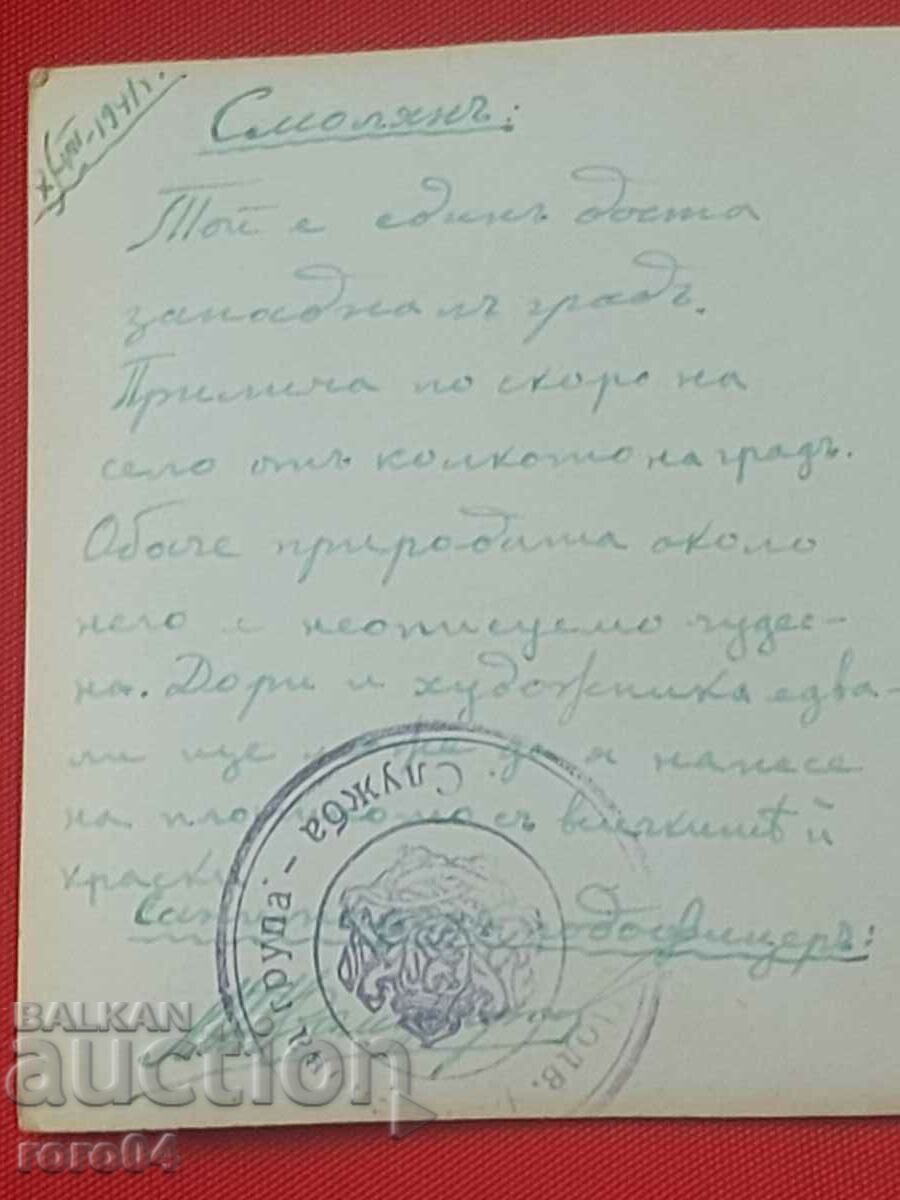 1941 г.
Смолянъ:
Той е единъ доста
западналъ градъ.
Прилича по скоро на
село отъ колкото на градъ.
Обаче природата около
него е неописуемо чудес-
на. Дори и художника едва-
ли ще може да я нанесе
на платното съ всичкитѣ й
краски
подофицеръ:
група - Служба
BALKAN
auction
roro04